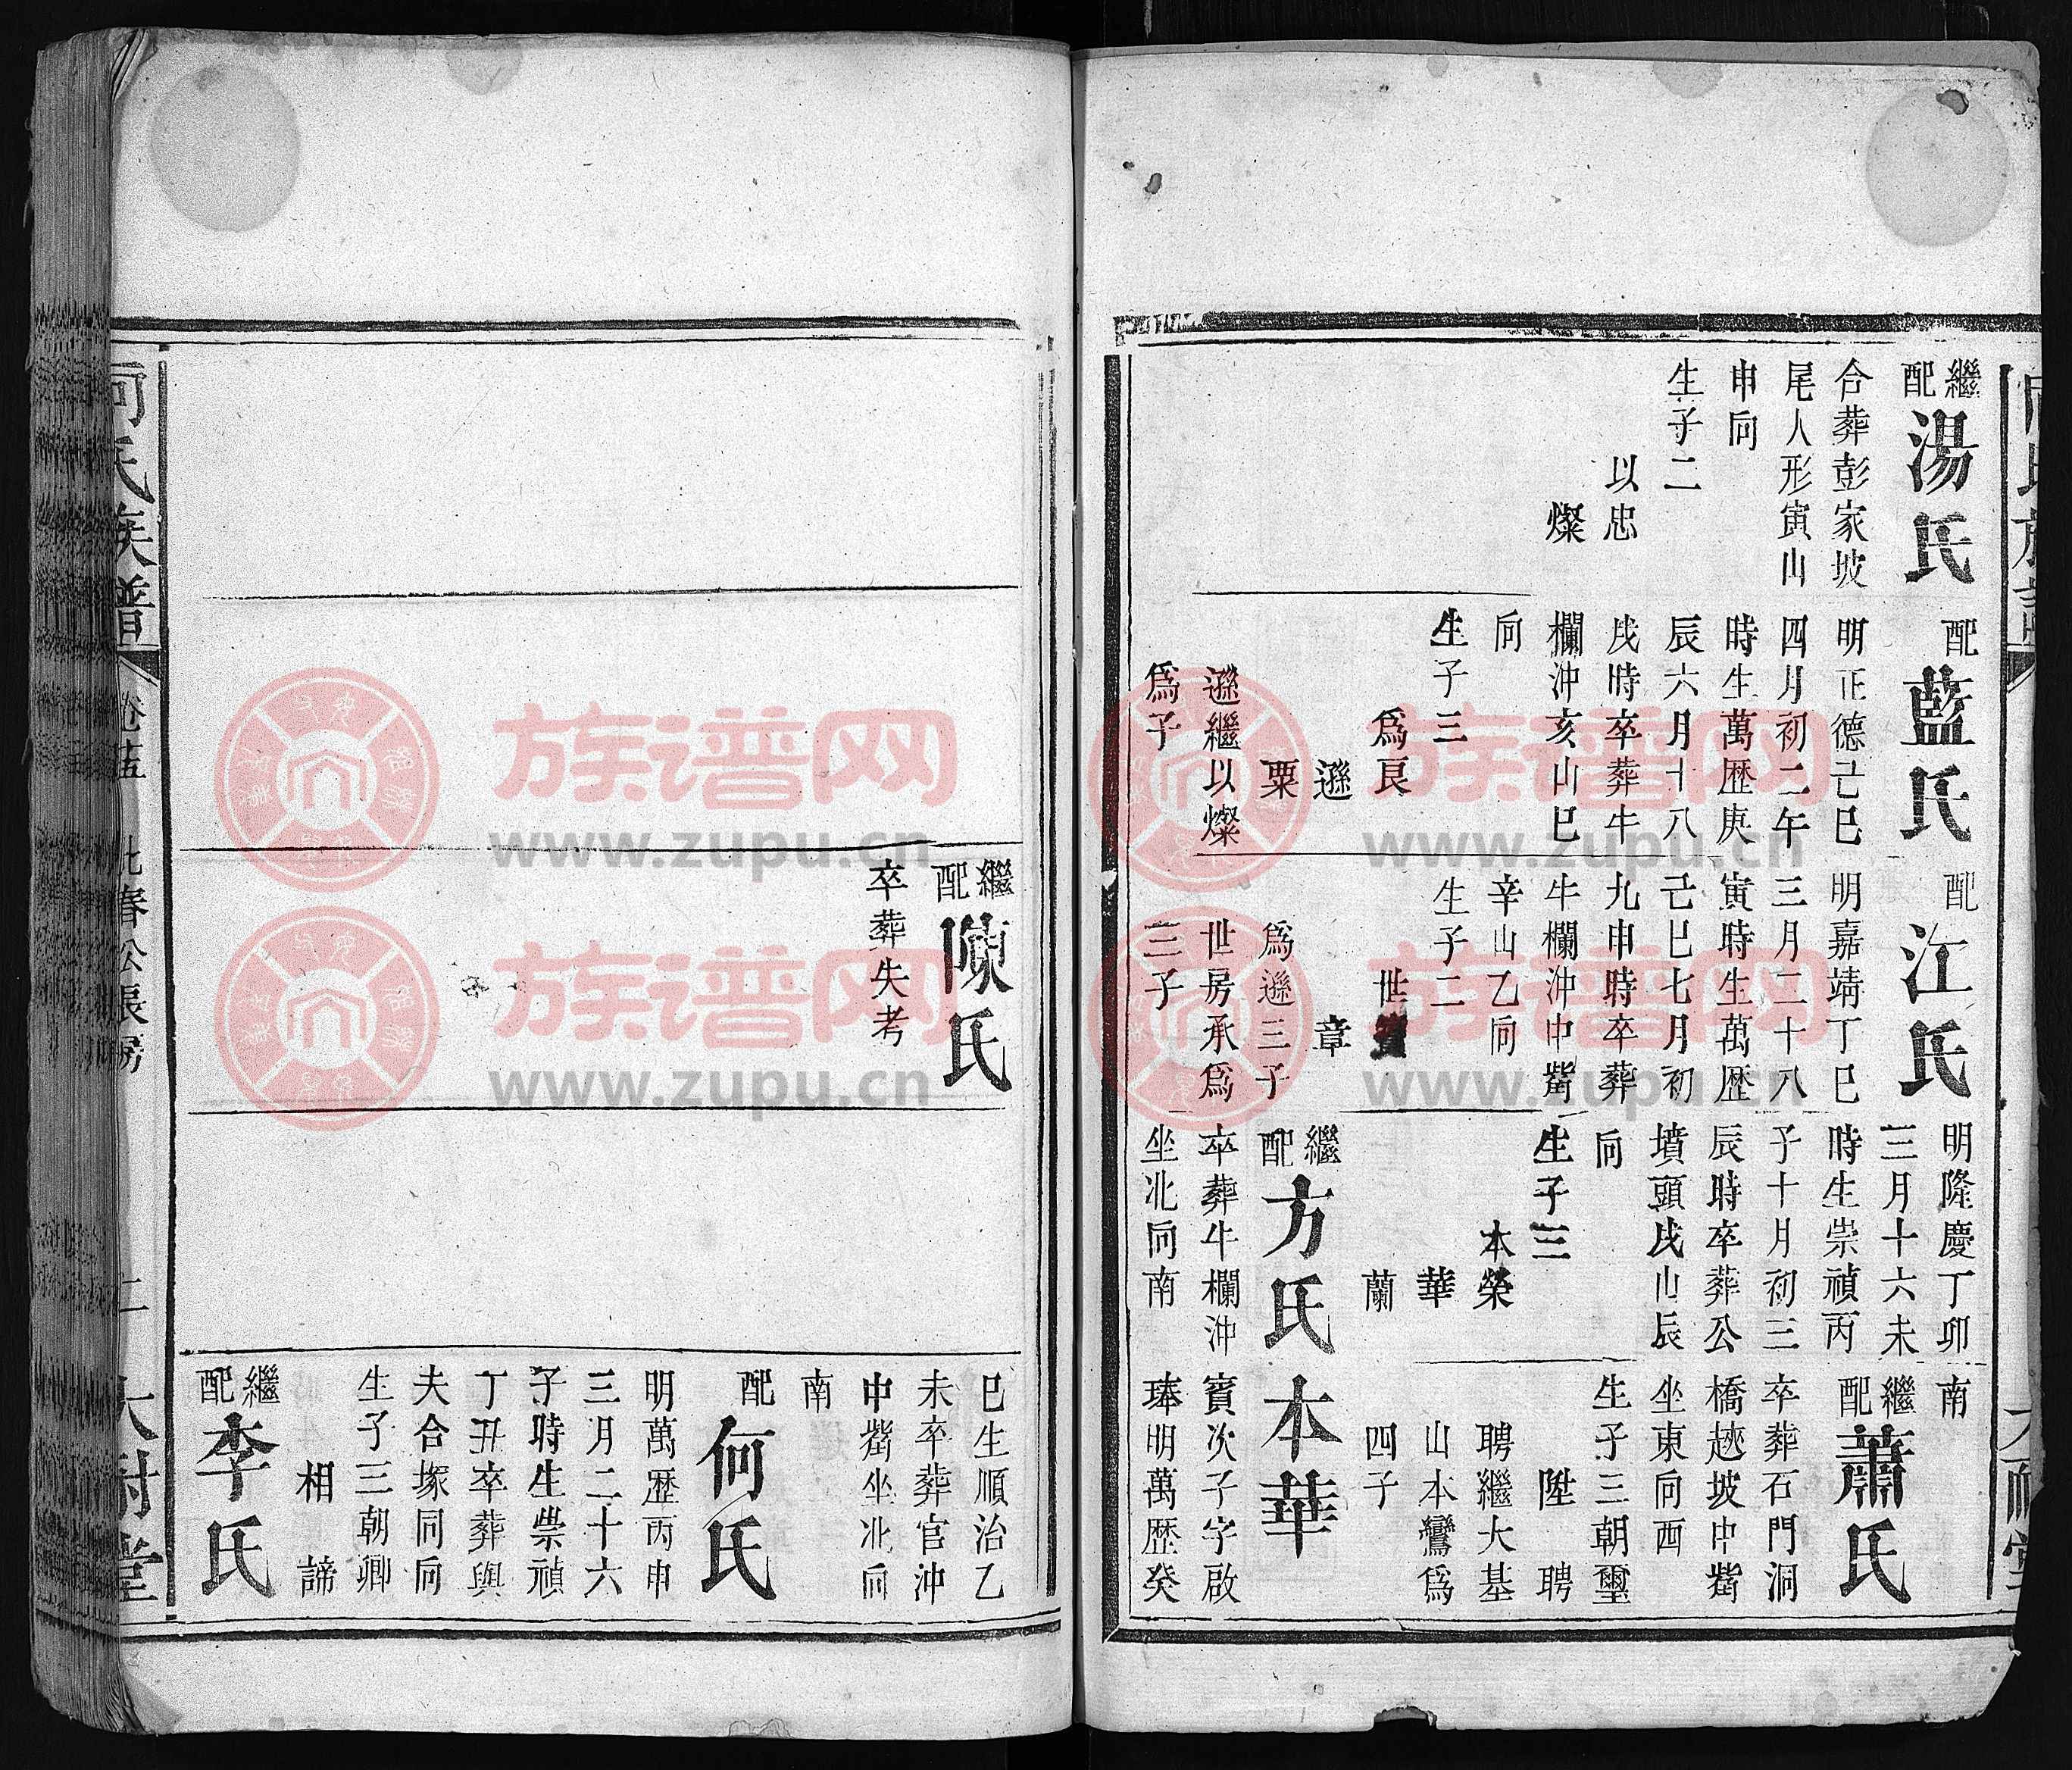 繼配湯氏
合葬彭家坡
尾人形寅山
申向
生子二
以忠
燦
配藍氏
明正德己巳
四月初二午
時生萬歷庚
辰六月十八
戌時卒葬牛
欄沖亥山巳
向
生子三
爲良
遜
粟
遜繼以燦
爲子
配江氏
明嘉靖丁巳
三月二十八
寅時生萬歷
己巳七月初
九申時卒葬
牛欄沖中嘴
辛山乙向
生子二
世
章
爲遜三子
世房承爲
三子
明隆慶丁卯
三月十六未
時生崇禎丙
子十月初三
辰時卒葬公
墳頭戌山辰
向
生子三
本榮
華
蘭
繼配方氏
卒葬牛欄沖
坐北向南
南
繼配蕭氏
卒葬石門洞
橋越坡中嘴
坐東向西
生子三朝璽
陞
聘
聘繼大基
山本鸞爲
四子
本華
賓次子字啟
琫明萬歷癸
繼配陳氏
卒葬失考
巳生順治乙
未卒葬官沖
中嘴坐北向
南
配何氏
明萬歷丙申
三月二十六
子時生崇禎
丁丑卒葬與
夫合塚同向
生子三朝卿
相
諦
繼配李氏
何氏族譜
卷五
春公長房
大耐堂
族谱网
www.zupu.cn
族谱网
www.zupu.cn
族谱网
www.zupu.cn
族谱网
www.zupu.cn